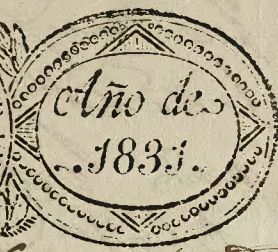 Año de
1831.